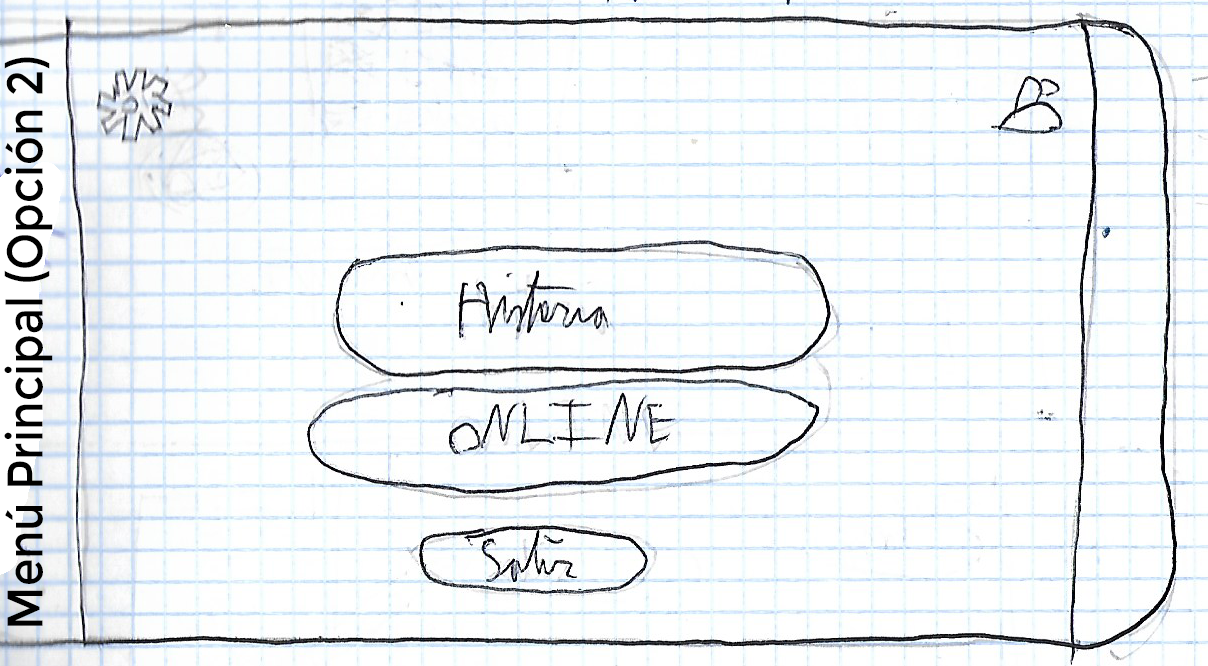 Menú Principal (Opción 2)
Historia
ONLINE
Salir